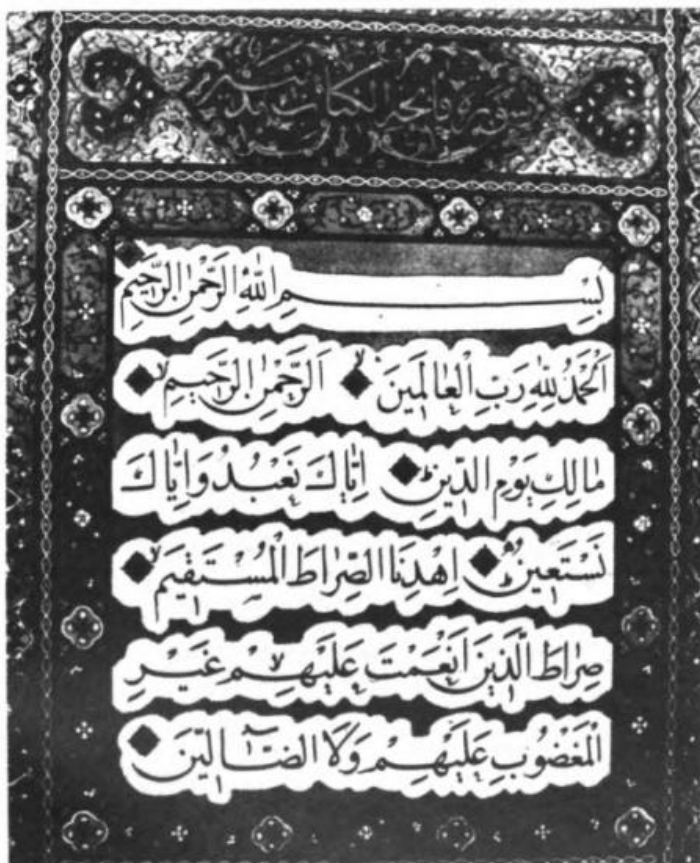 سورة فاتحة الكتاب
بِسْمِ اللّٰهِ الرَّحْمٰنِ الرَّحٖيمِ
اَلْحَمْدُ لِلّٰهِ رَبِّ الْعَالَمٖينَ ۙ اَلرَّحْمٰنِ الرَّحٖيمِ ۙ
مَالِكِ يَوْمِ الدّٖينِ ؕ اِيَّاكَ نَعْبُدُ وَاِيَّاكَ
نَسْتَعٖينُ ؕ اِهْدِنَا الصِّرَاطَ الْمُسْتَقٖيمَ ۙ
صِرَاطَ الَّذٖينَ اَنْعَمْتَ عَلَيْهِمْ ۙ غَيْرِ
الْمَغْضُوبِ عَلَيْهِمْ وَلَا الضَّٓالّٖينَ